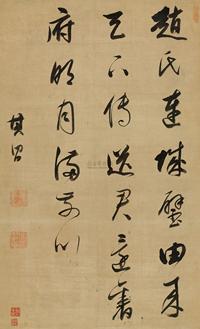 趙氏連城璧由來
天下傳送君還舊
府明月滿前川
其昌